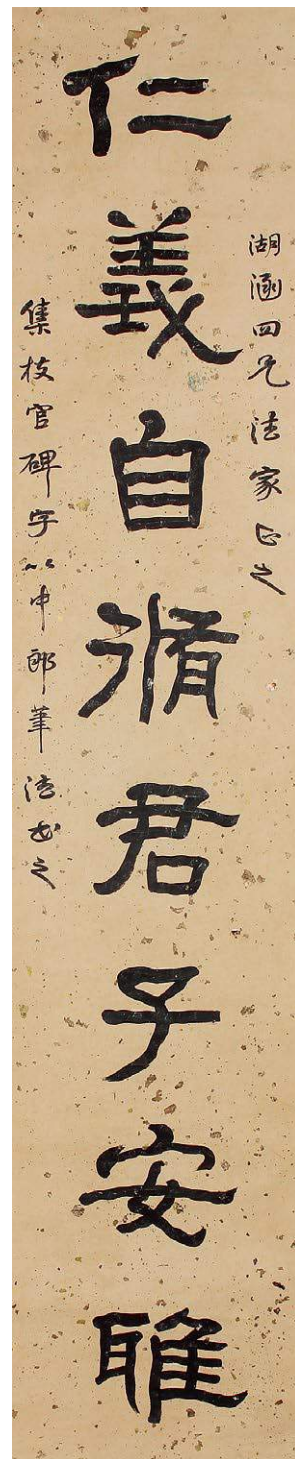 湖涵四兄法家正之
仁義自脩君子安雅
集校官碑字以中郎筆法書之